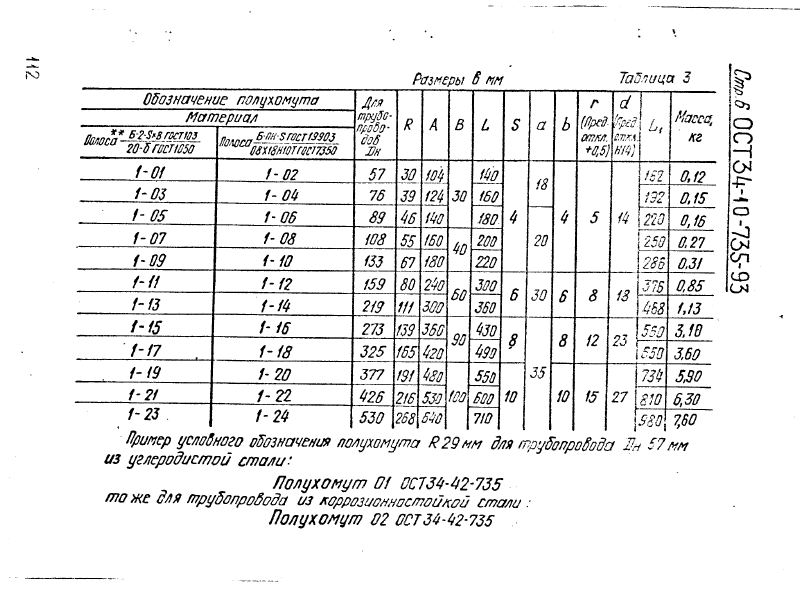 112
Стр 6 ОСТ34-10-735-93
Размеры в мм Таблица 3
Обозначение полухомута
Материал
Полоса** Б-2-S×В ГОСТ103 / 20-б ГОСТ1050
Полоса Б-ПН-S ГОСТ19903 / 08Х18Н10Т ГОСТ7350
Для трубопроводов Dн R A B L S a b r (Пред. откл. +0,5) d (Пред. откл. H14) L₁ Масса, кг
1-01 1-02 57 30 104 30 140 4 18 4 5 14 162 0,12
1-03 1-04 76 39 124 160 192 0,15
1-05 1-06 89 46 140 180 20 220 0,16
1-07 1-08 108 55 160 40 200 250 0,27
1-09 1-10 133 67 180 220 286 0,31
1-11 1-12 159 80 240 60 300 6 30 6 8 18 376 0,85
1-13 1-14 219 111 300 360 468 1,13
1-15 1-16 273 139 360 90 430 8 35 8 12 23 3,18
1-17 1-18 325 165 420 490 3,60
1-19 1-20 377 191 480 100 550 10 10 15 27 734 5,90
1-21 1-22 426 216 530 600 810 6,30
1-23 1-24 530 268 640 710 7,60
Пример условного обозначения полухомута R 29 мм для трубопровода Dн 57 мм
из углеродистой стали:
Полухомут 01 ОСТ34-42-735
то же для трубопровода из коррозионностойкой стали:
Полухомут 02 ОСТ34-42-735